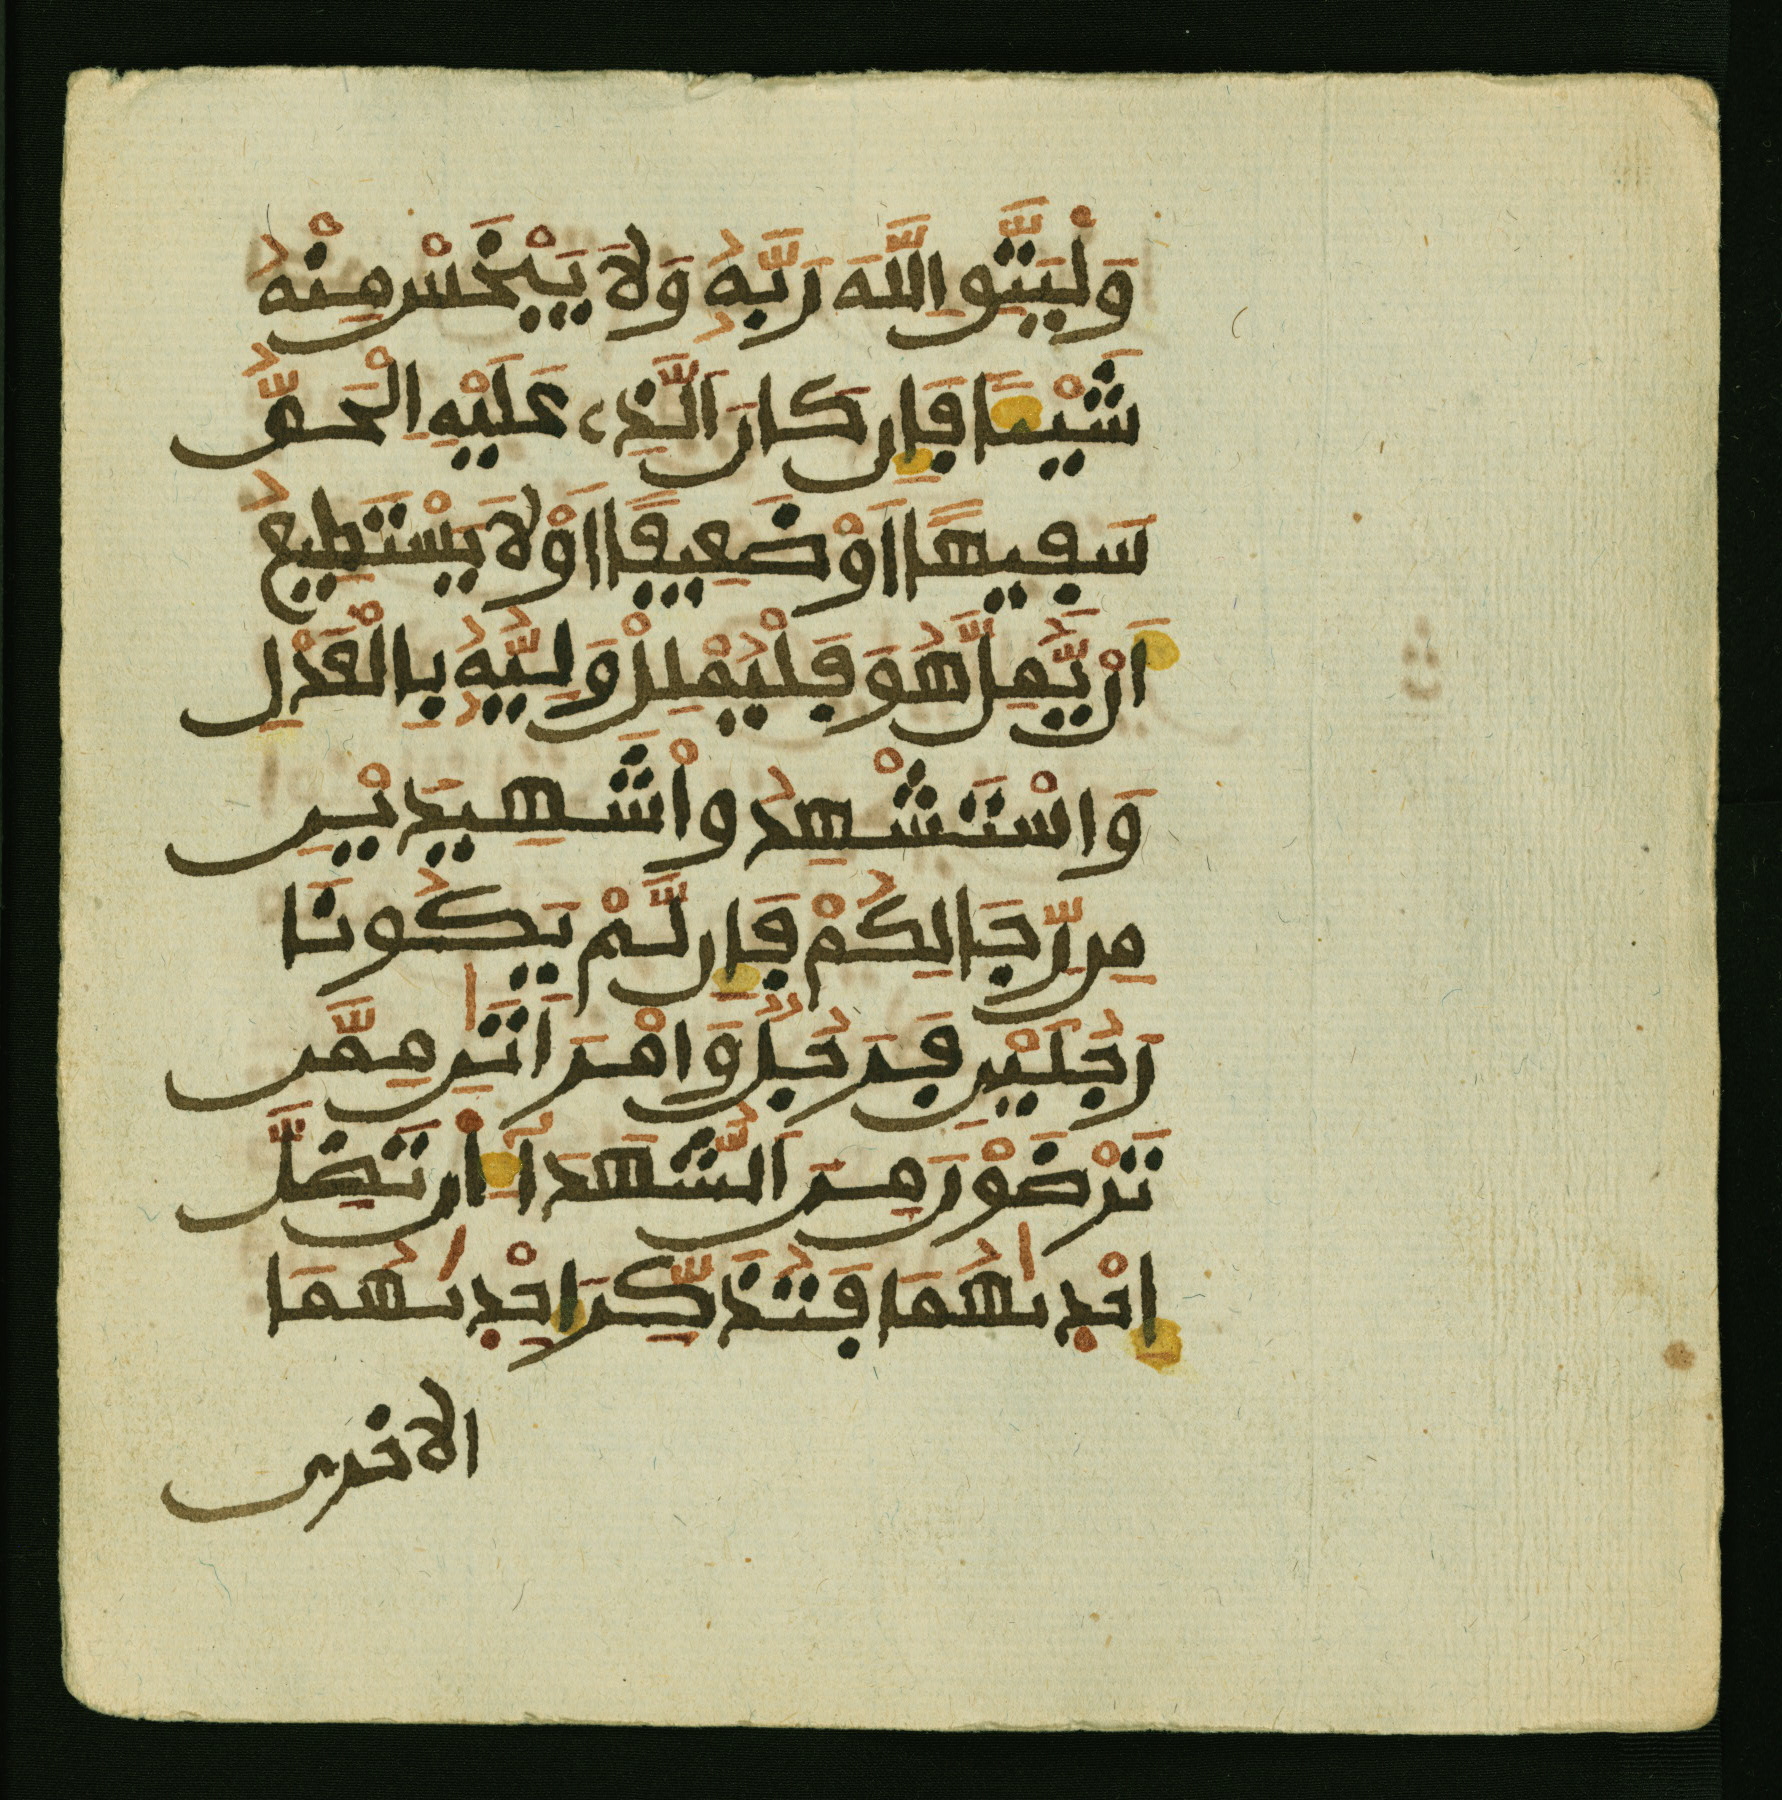 وَلْيَتَّقِ اللَّهَ رَبَّهُ وَلَا يَبْخَسْ مِنْهُ
شَيْـًٔا فَإِن كَانَ الَّذِے عَلَيْهِ الْحَقُّ
سَفِيهًا اَوْ ضَعِيفًا اَوْ لَا يَسْتَطِيعُ
أَنْ يُّمِلَّ هُوَ فَلْيُمْلِلْ وَلِيُّهُ بِالْعَدْلِ
وَاسْتَشْهِدُواْ شَهِيدَيْنِ
مِن رِّجَالِكُمْ فَإِن لَّمْ يَكُونَا
رَجُلَيْنِ فَرَجُلٌ وَّامْرَأَتَٰنِ مِمَّن
تَرْضَوْنَ مِنَ الشُّهَدَآءِ اَ۬ن تَضِلَّ
إِحْدٜىٰهُمَا فَتُذَكِّرَ إِحْدٜىٰهُمَا
الاخرى